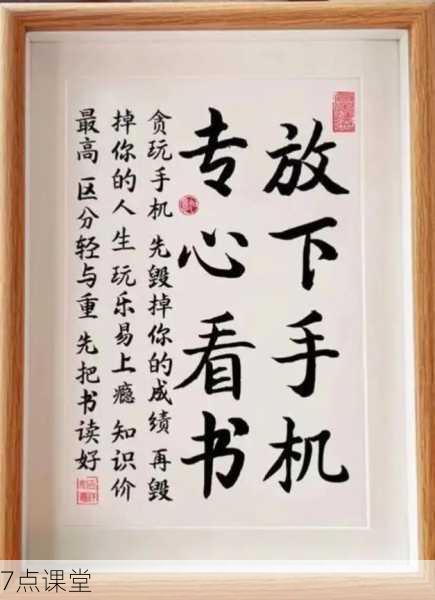 放下手机
专心看书
贪玩手机 先毁掉你的成绩 再毁
掉你的人生 玩乐易上瘾 知识价
最高 区分轻与重 先把书读好
7点课堂